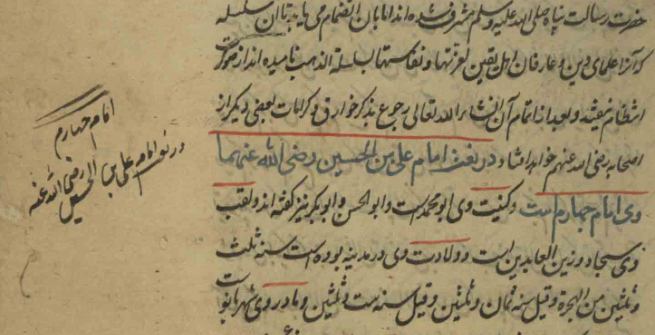 حضرت رسالت پناه صلی الله علیه وسلم مشرف شده اند اما بآن انضمام می یابد تا آن سلسله
که آنرا علمای دین و عارفان اهل یقین لعزتها و نفاستها سلسلة الذهب نامیده اند از صورت
انتظام نیفتد و بعد از اتمام آن ان شاء الله تعالی رجوع بذکر خوارق و کرامات بعضی دیگر از
اصحابه رضی الله عنهم خواهد افتاد در نعت امام علی بن الحسین رضی الله عنهما
وی امام چهارم است و کنیت وی ابو محمد است و ابو الحسن و ابو بکر نیز گفته اند و لقب
وی سجاد و زین العابدین است و ولادت وی در مدینه بوده است سنه ثلث
و ثلثین من الهجرة و قیل سنه ثمان و ثلثین و قیل سنه ست و ثلثین و مادر وی شهربانو است
امام چهارم
در نعت امام علی بن الحسین رضی الله عنه